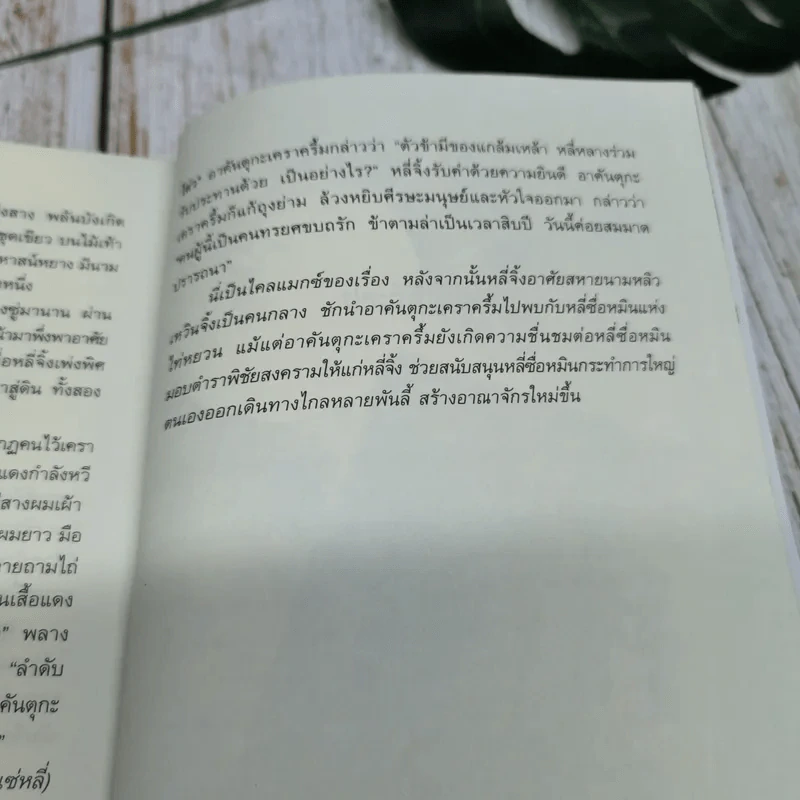 งสาง พลันบังเกิด
ชุดเขียว บนไม้เท้า
หาสน์หยาง มีนาม
หนึ่ง
งซู่มานาน ผ่าน
น้ามาพึ่งพาอาศัย
อหลี่จิ้งเพ่งพิศ
าสู่ดิน ทั้งสอง
กฏคนไว้เครา
แดงกำลังหวี
สางผมเผ้า
ผมยาว มือ
ายถามไถ่
นเสื้อแดง
" พลาง
"ลำดับ
คันตุกะ
"
เซ่หลี่)
อาคันตุกะเคราครึ้มกล่าวว่า "ตัวข้ามีของแกล้มเหล้า หลี่หลางร่วม
รับประทานด้วย เป็นอย่างไร?" หลี่จิ้งรับคำด้วยความยินดี อาคันตุกะ
เคราครึ้มก็แก้ถุงย่าม ล้วงหยิบศีรษะมนุษย์และหัวใจออกมา กล่าวว่า
"คนผู้นี้เป็นคนทรยศขบถรัก ข้าตามล่าเป็นเวลาสิบปี วันนี้ค่อยสมมาด
ปรารถนา"
นี่เป็นไคลแมกซ์ของเรื่อง หลังจากนั้นหลี่จิ้งอาศัยสหายนามหลิว
เหวินจิ้งเป็นคนกลาง ชักนำอาคันตุกะเคราครึ้มไปพบกับหลี่ซื่อหมินแห่ง
ไท่หยวน แม้แต่อาคันตุกะเคราครึ้มยังเกิดความชื่นชมต่อหลี่ซื่อหมิน
มอบตำราพิชัยสงครามให้แก่หลี่จิ้ง ช่วยสนับสนุนหลี่ซื่อหมินกระทำการใหญ่
ตนเองออกเดินทางไกลหลายพันลี้ สร้างอาณาจักรใหม่ขึ้น